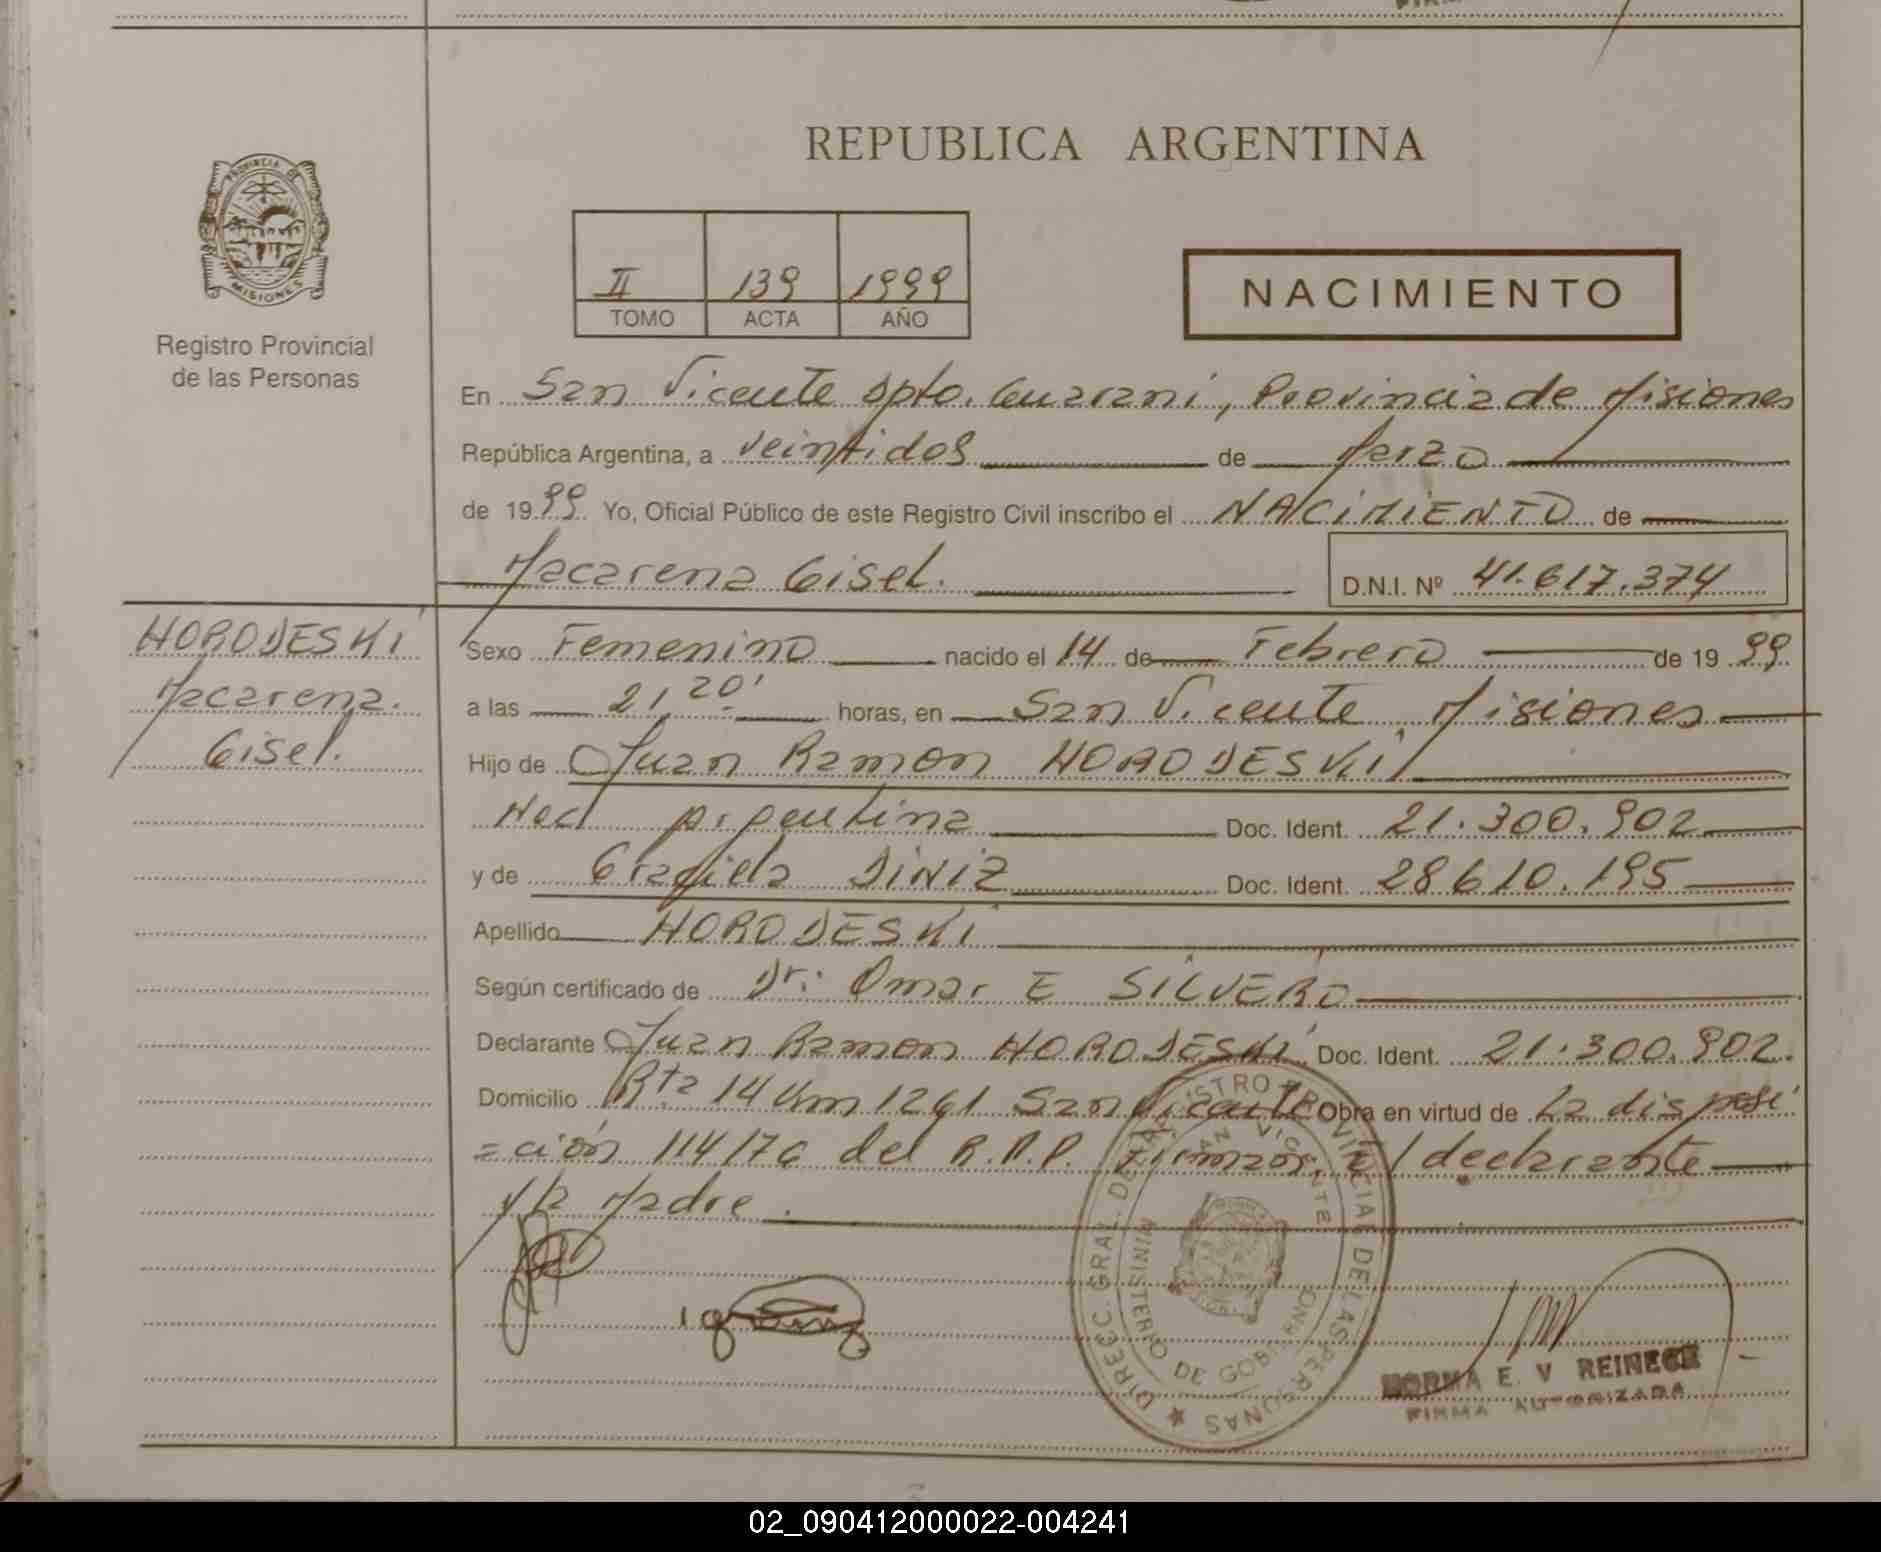 REPUBLICA ARGENTINA
PROVINCIA DE
MISIONES
Registro Provincial
de las Personas
II 139 1999
TOMO ACTA AÑO
NACIMIENTO
En San Vicente Dpto. Guarani, Provincia de Misiones
República Argentina, a veintidos de Marzo
de 1999 Yo, Oficial Público de este Registro Civil inscribo el NACIMIENTO de
Macarena Gisel. D.N.I. Nº 41.617.374
HORODESKI
Macarena.
Gisel.
Sexo Femenino nacido el 14 de Febrero de 1999
a las 21,20' horas, en San Vicente Misiones
Hijo de Juan Ramon HORODESKI
Nac Argentina Doc. Ident. 21.300.902
y de Graciela DINIZ Doc. Ident. 28610.195
Apellido HORODESKI
Según certificado de Dr: Omar E SILVERO
Declarante Juan Ramon HORODESKI Doc. Ident. 21.300.902.
Domicilio Rta 14 Km 1261 San Vicente Obra en virtud de La disposi
=ción 114/76 del R.P.P. Firman, el declarante
y la Madre.
DIREC. GRAL. DEL REGISTRO PROVINCIAL DE LAS PERSONAS
SAN VICENTE
MINISTERIO DE GOBIERNO
NORMA E. V REINECK
FIRMA AUTORIZADA
02_090412000022-004241